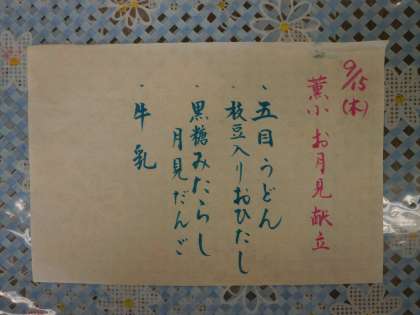 9/15(木)
薫小 お月見献立
・五目うどん
・枝豆入りおひたし
・黒糖みたらし
月見だんご
・牛乳